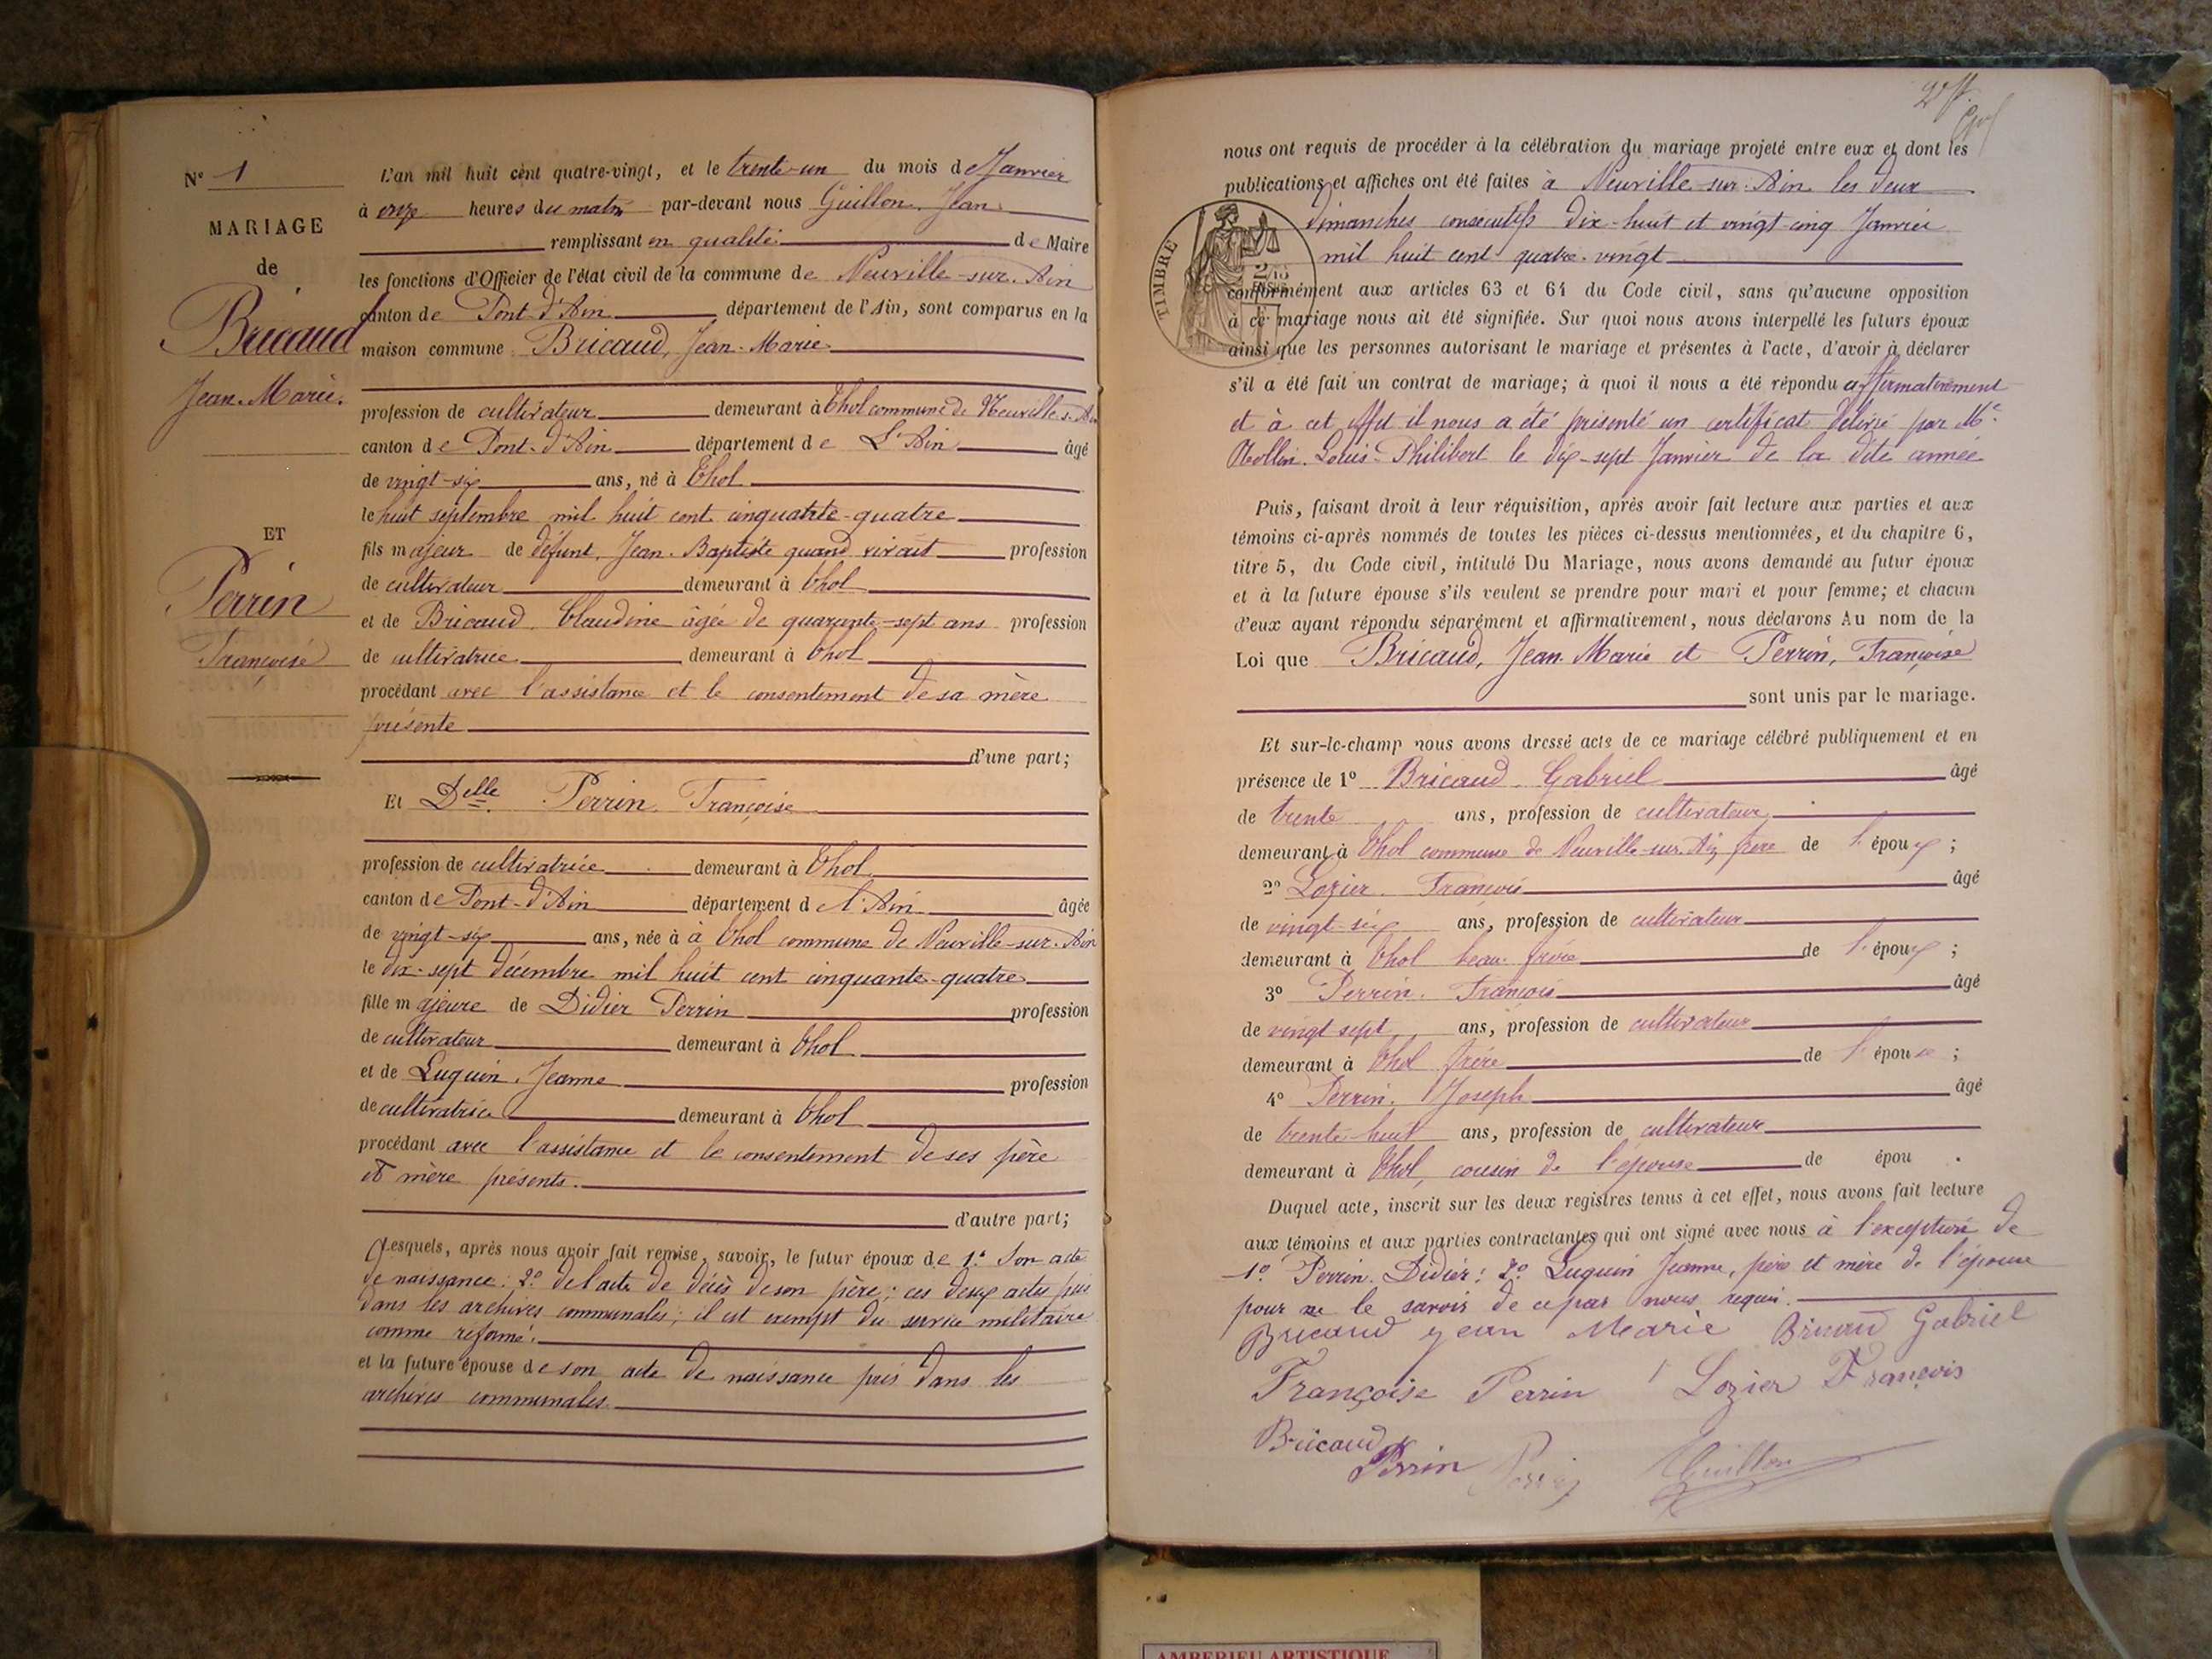 N° 1
MARIAGE
de
Bricaud
Jean-Marie.
ET
Perrin
Françoise
L'an mil huit cent quatre-vingt, et le trente-un du mois de Janvier
à onze heures du matin par-devant nous Guillon Jean
remplissant en qualité de Maire
les fonctions d'Officier de l'état civil de la commune de Neuville-sur-Ain
canton de Pont-d'Ain département de l'Ain, sont comparus en la
maison commune Bricaud, Jean-Marie
profession de cultivateur demeurant à Thol commune de Neuville-s-Ain
canton de Pont-d'Ain département de L'Ain âgé
de vingt-six ans, né à Thol
le huit septembre mil huit cent cinquante-quatre
fils majeur de défunt, Jean-Baptiste quand vivait profession
de cultivateur demeurant à Thol
et de Bricaud Claudine âgée de quarante-sept ans profession
de cultivatrice demeurant à Thol
procédant avec l'assistance et le consentement de sa mère
présente
d'une part;
Et Delle Perrin Françoise
profession de cultivatrice demeurant à Thol
canton de Pont-d'Ain département de l'Ain âgée
de vingt-six ans, née à à Thol commune de Neuville-sur-Ain
le dix-sept décembre mil huit cent cinquante-quatre
fille majeure de Didier Perrin profession
de cultivateur demeurant à Thol
et de Luquin, Jeanne profession
de cultivatrice demeurant à Thol
procédant avec l'assistance et le consentement de ses père
et mère présents.
d'autre part;
Lesquels, après nous avoir fait remise, savoir, le futur époux de 1° Son acte
de naissance; 2° de l'acte de décès de son père; ces deux actes pris
dans les archives communales; il est exempt du service militaire
comme réformé.
et la future épouse de son acte de naissance pris dans les
archives communales
nous ont requis de procéder à la célébration du mariage projeté entre eux et dont les
publications et affiches ont été faites à Neuville-sur-Ain les deux
dimanches consécutifs dix-huit et vingt-cinq Janvier
mil huit cent quatre-vingt
TIMBRE
conformément aux articles 63 et 64 du Code civil, sans qu'aucune opposition
à ce mariage nous ait été signifiée. Sur quoi nous avons interpellé les futurs époux
ainsi que les personnes autorisant le mariage et présentes à l'acte, d'avoir à déclarer
s'il a été fait un contrat de mariage; à quoi il nous a été répondu affirmativement
et à cet effet il nous a été présenté un certificat délivré par Me
Louis-Philibert le dix-sept Janvier de la dite année
Puis, faisant droit à leur réquisition, après avoir fait lecture aux parties et aux
témoins ci-après nommés de toutes les pièces ci-dessus mentionnées, et du chapitre 6,
titre 5, du Code civil, intitulé Du Mariage, nous avons demandé au futur époux
et à la future épouse s'ils veulent se prendre pour mari et pour femme; et chacun
d'eux ayant répondu séparément et affirmativement, nous déclarons Au nom de la
Loi que Bricaud, Jean-Marie et Perrin, Françoise
sont unis par le mariage.
Et sur-le-champ nous avons dressé acte de ce mariage célébré publiquement et en
présence de 1° Bricaud Gabriel âgé
de trente ans, profession de cultivateur
demeurant à Thol commune de Neuville-sur-Ain frère de l'époux;
2° Lozier François âgé
de vingt-six ans, profession de cultivateur
demeurant à Thol beau-frère de l'époux;
3° Perrin François âgé
de vingt sept ans, profession de cultivateur
demeurant à Thol frère de l'épouse;
4° Perrin Joseph âgé
de trente-huit ans, profession de cultivateur
demeurant à Thol, cousin de l'épouse de épou.
Duquel acte, inscrit sur les deux registres tenus à cet effet, nous avons fait lecture
aux témoins et aux parties contractantes qui ont signé avec nous à l'exception de
1° Perrin Didier; 2° Luquin Jeanne, père et mère de l'épouse
pour ne le savoir de ce par nous requis.
Bricaud jean Marie Bricaud Gabriel
Françoise Perrin Lozier François
Bricaud
Perrin Perrin Guillon
AMBERIEU ARTISTIQUE